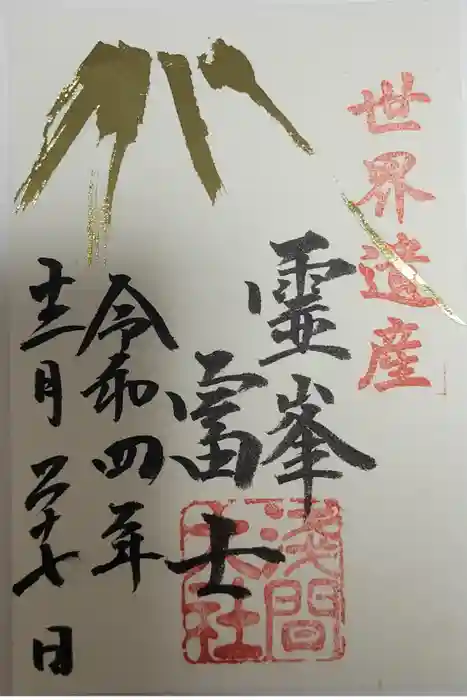 世界遺産
霊峯
富士
浅間
大社
令和四年
十二月二十七日